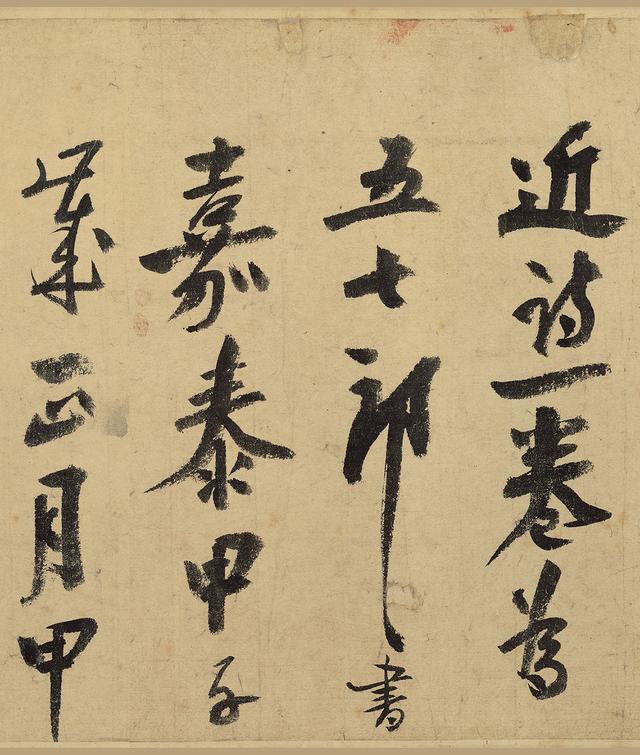 近詩一卷為
五七郎書
嘉泰甲子
歲正月甲